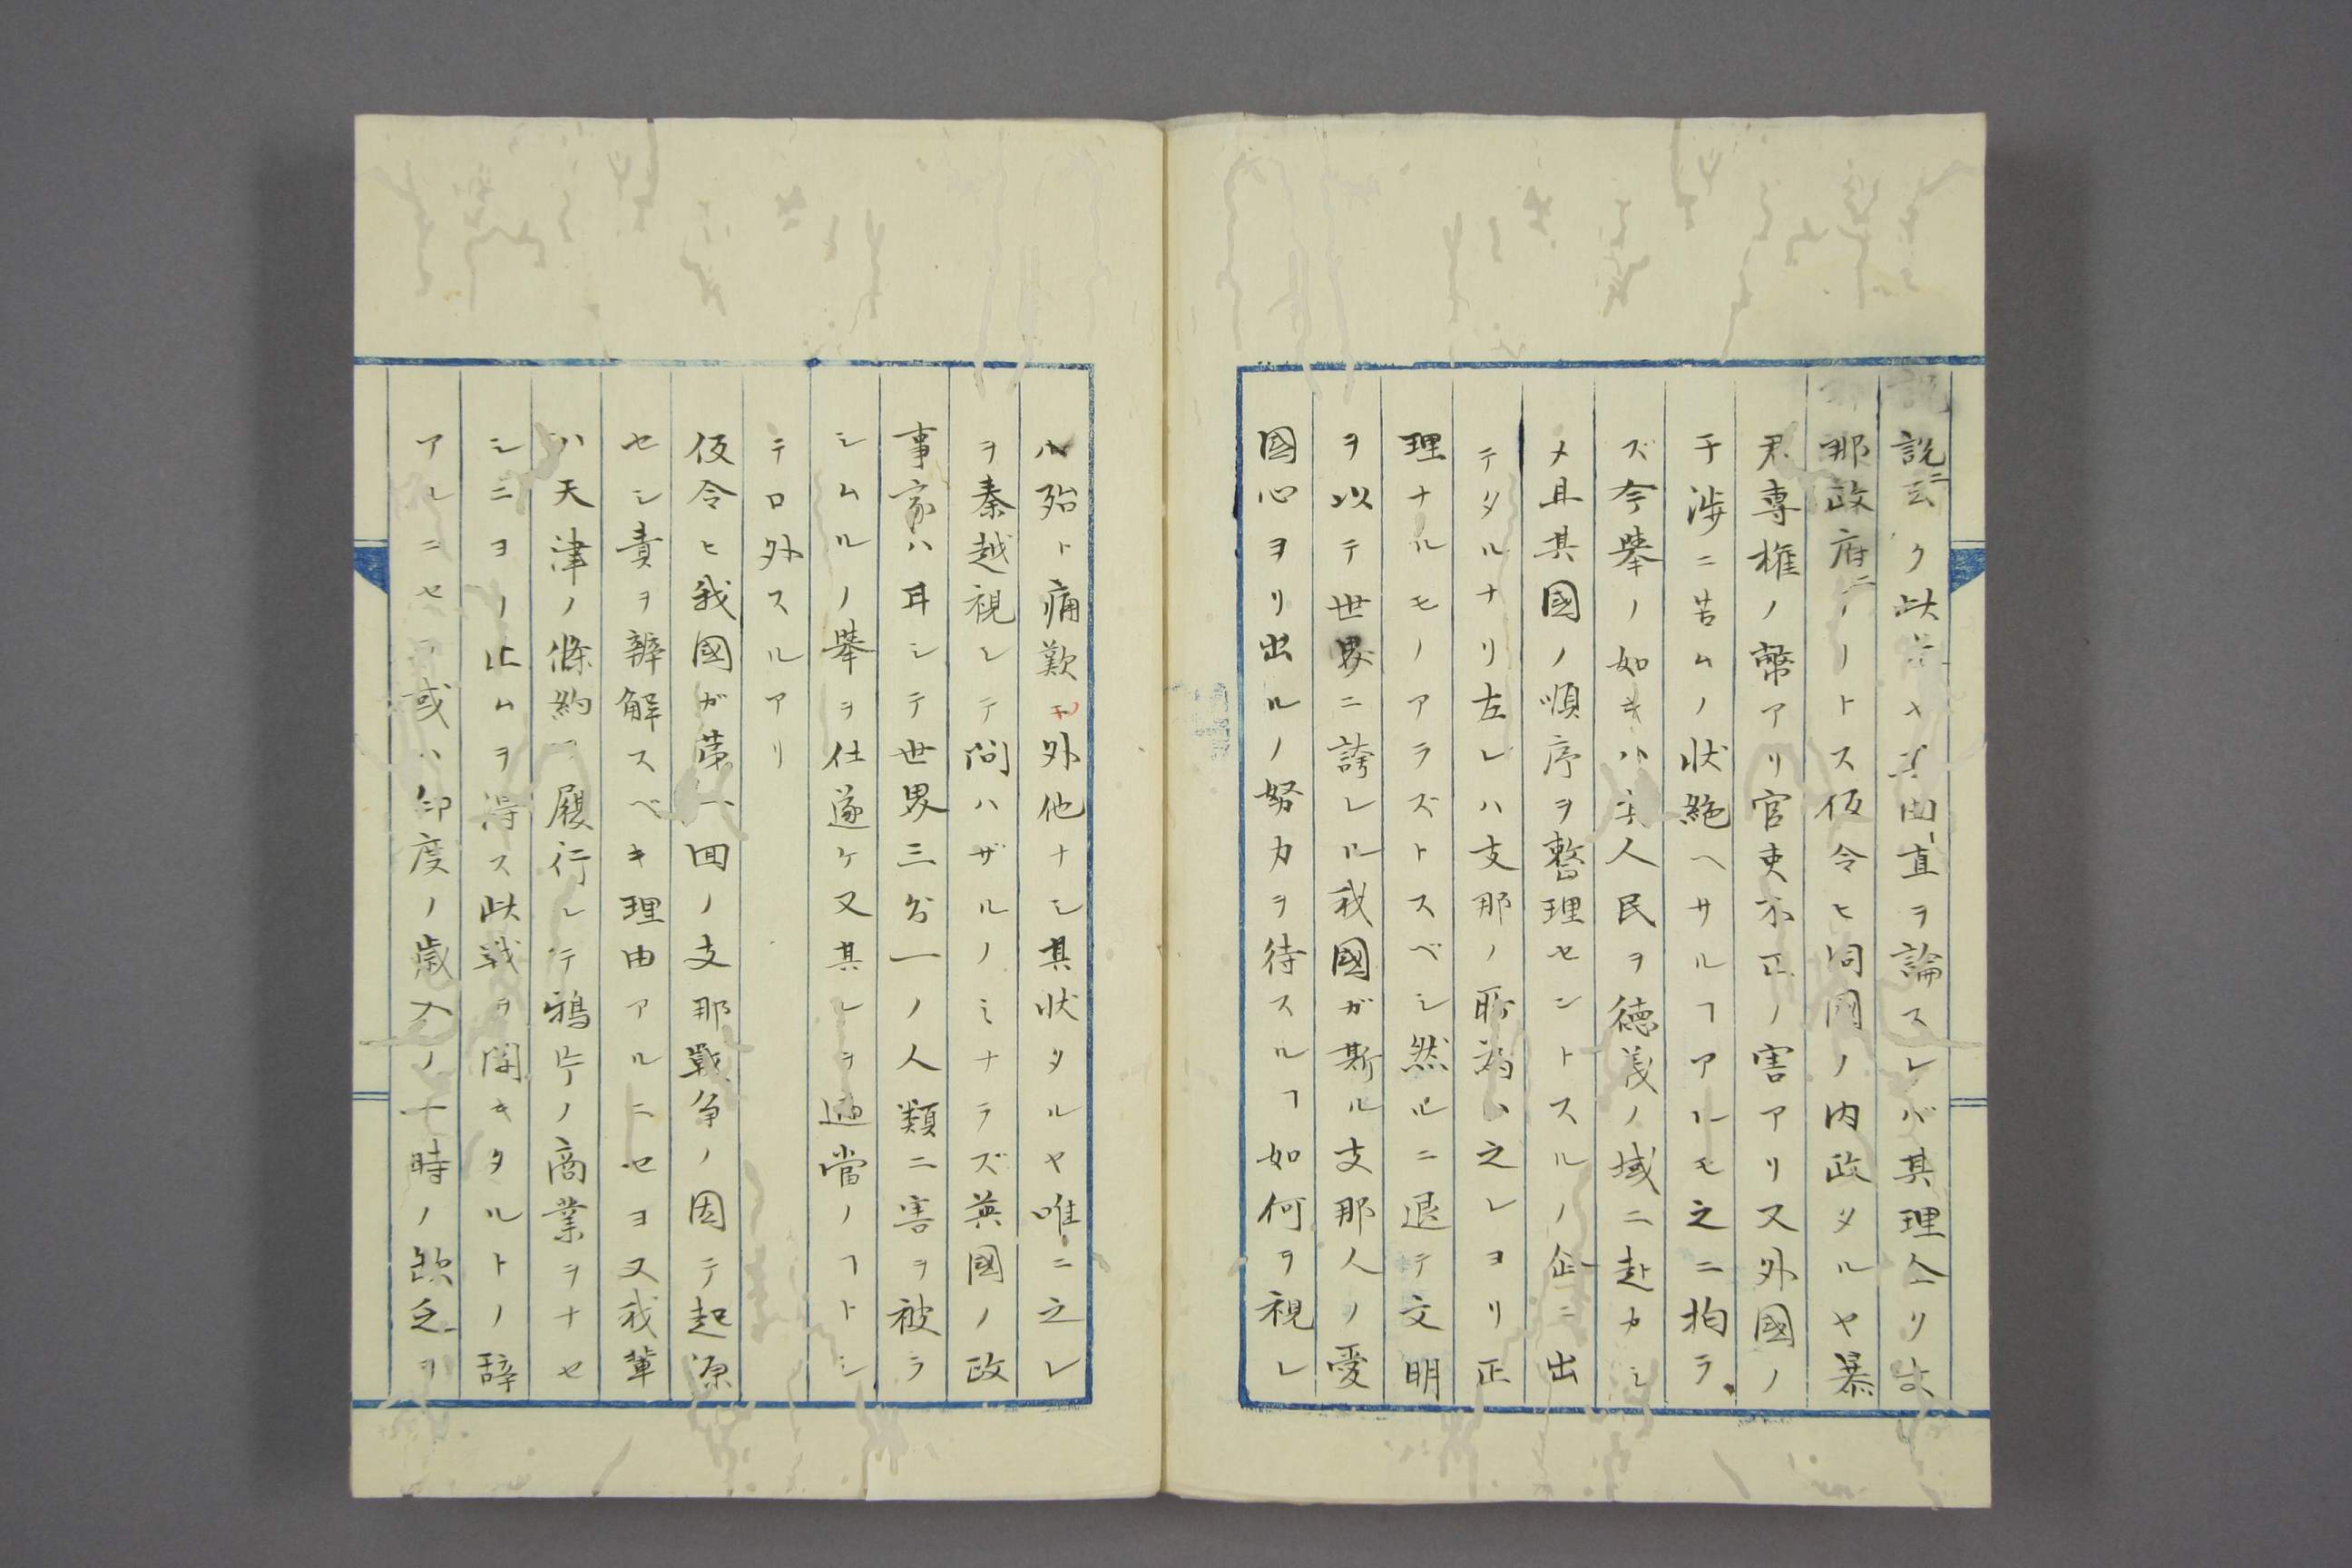 説ニ云ク此 其曲直ヲ論スレバ其理全リ
那政府ニノトス仮令ヒ同國ノ内政タルヤ暴
君専権ノ幣アリ官吏不正ノ害アリ又外國ノ
干渉ニ苦ムノ状絶ヘサルヿアルモ之ニ拘ラ
ズ今挙ノ如キハ実人民ヲ徳義ノ域ニ赴カシ
メ且其國ノ順序ヲ整理セントスルノ企ニ出
テタルナリ左レハ支那ノ所為ハ之レヨリ正
理ナルモノアラズトスベシ然ルニ退テ文明
ヲ以テ世界ニ誇レル我國ガ斯ル支那人ノ愛
國心ヨリ出ルノ努力ヲ待スルヿ如何ヲ視レ
ハ殆ト痛歎ノ外他ナシ其状タルヤ唯ニ之レ
ヲ秦越視シテ問ハザルノミナラズ英國ノ政
事家ハ耳シテ世界三分一ノ人類ニ害ヲ被ラ
シムルノ挙ヲ仕遂ケ又其レヲ適當ノヿトシ
テロ外スルアリ
仮令ヒ我國ガ第一回ノ支那戰争ノ因テ起源
セシ責ヲ辨解スベキ理由アルニセヨ又我輩
ハ天津ノ條約ヲ履行シテ鴉片ノ商業ヲナセ
シニヨノ止ムヲ得ス此戦ヲ開キタルトノ辞
アルニセヨ或ハ印度ノ歳入ノ一時ノ缺乏ヲ